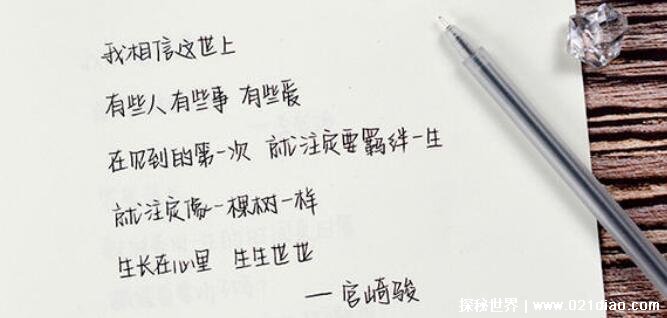 我相信这世上
有些人有些事 有些爱
在见到的第一次 就注定要羁绊一生
就注定像一棵树一样
生长在心里 生生世世
— 宫崎骏
探秘世界｜www.021diao.com